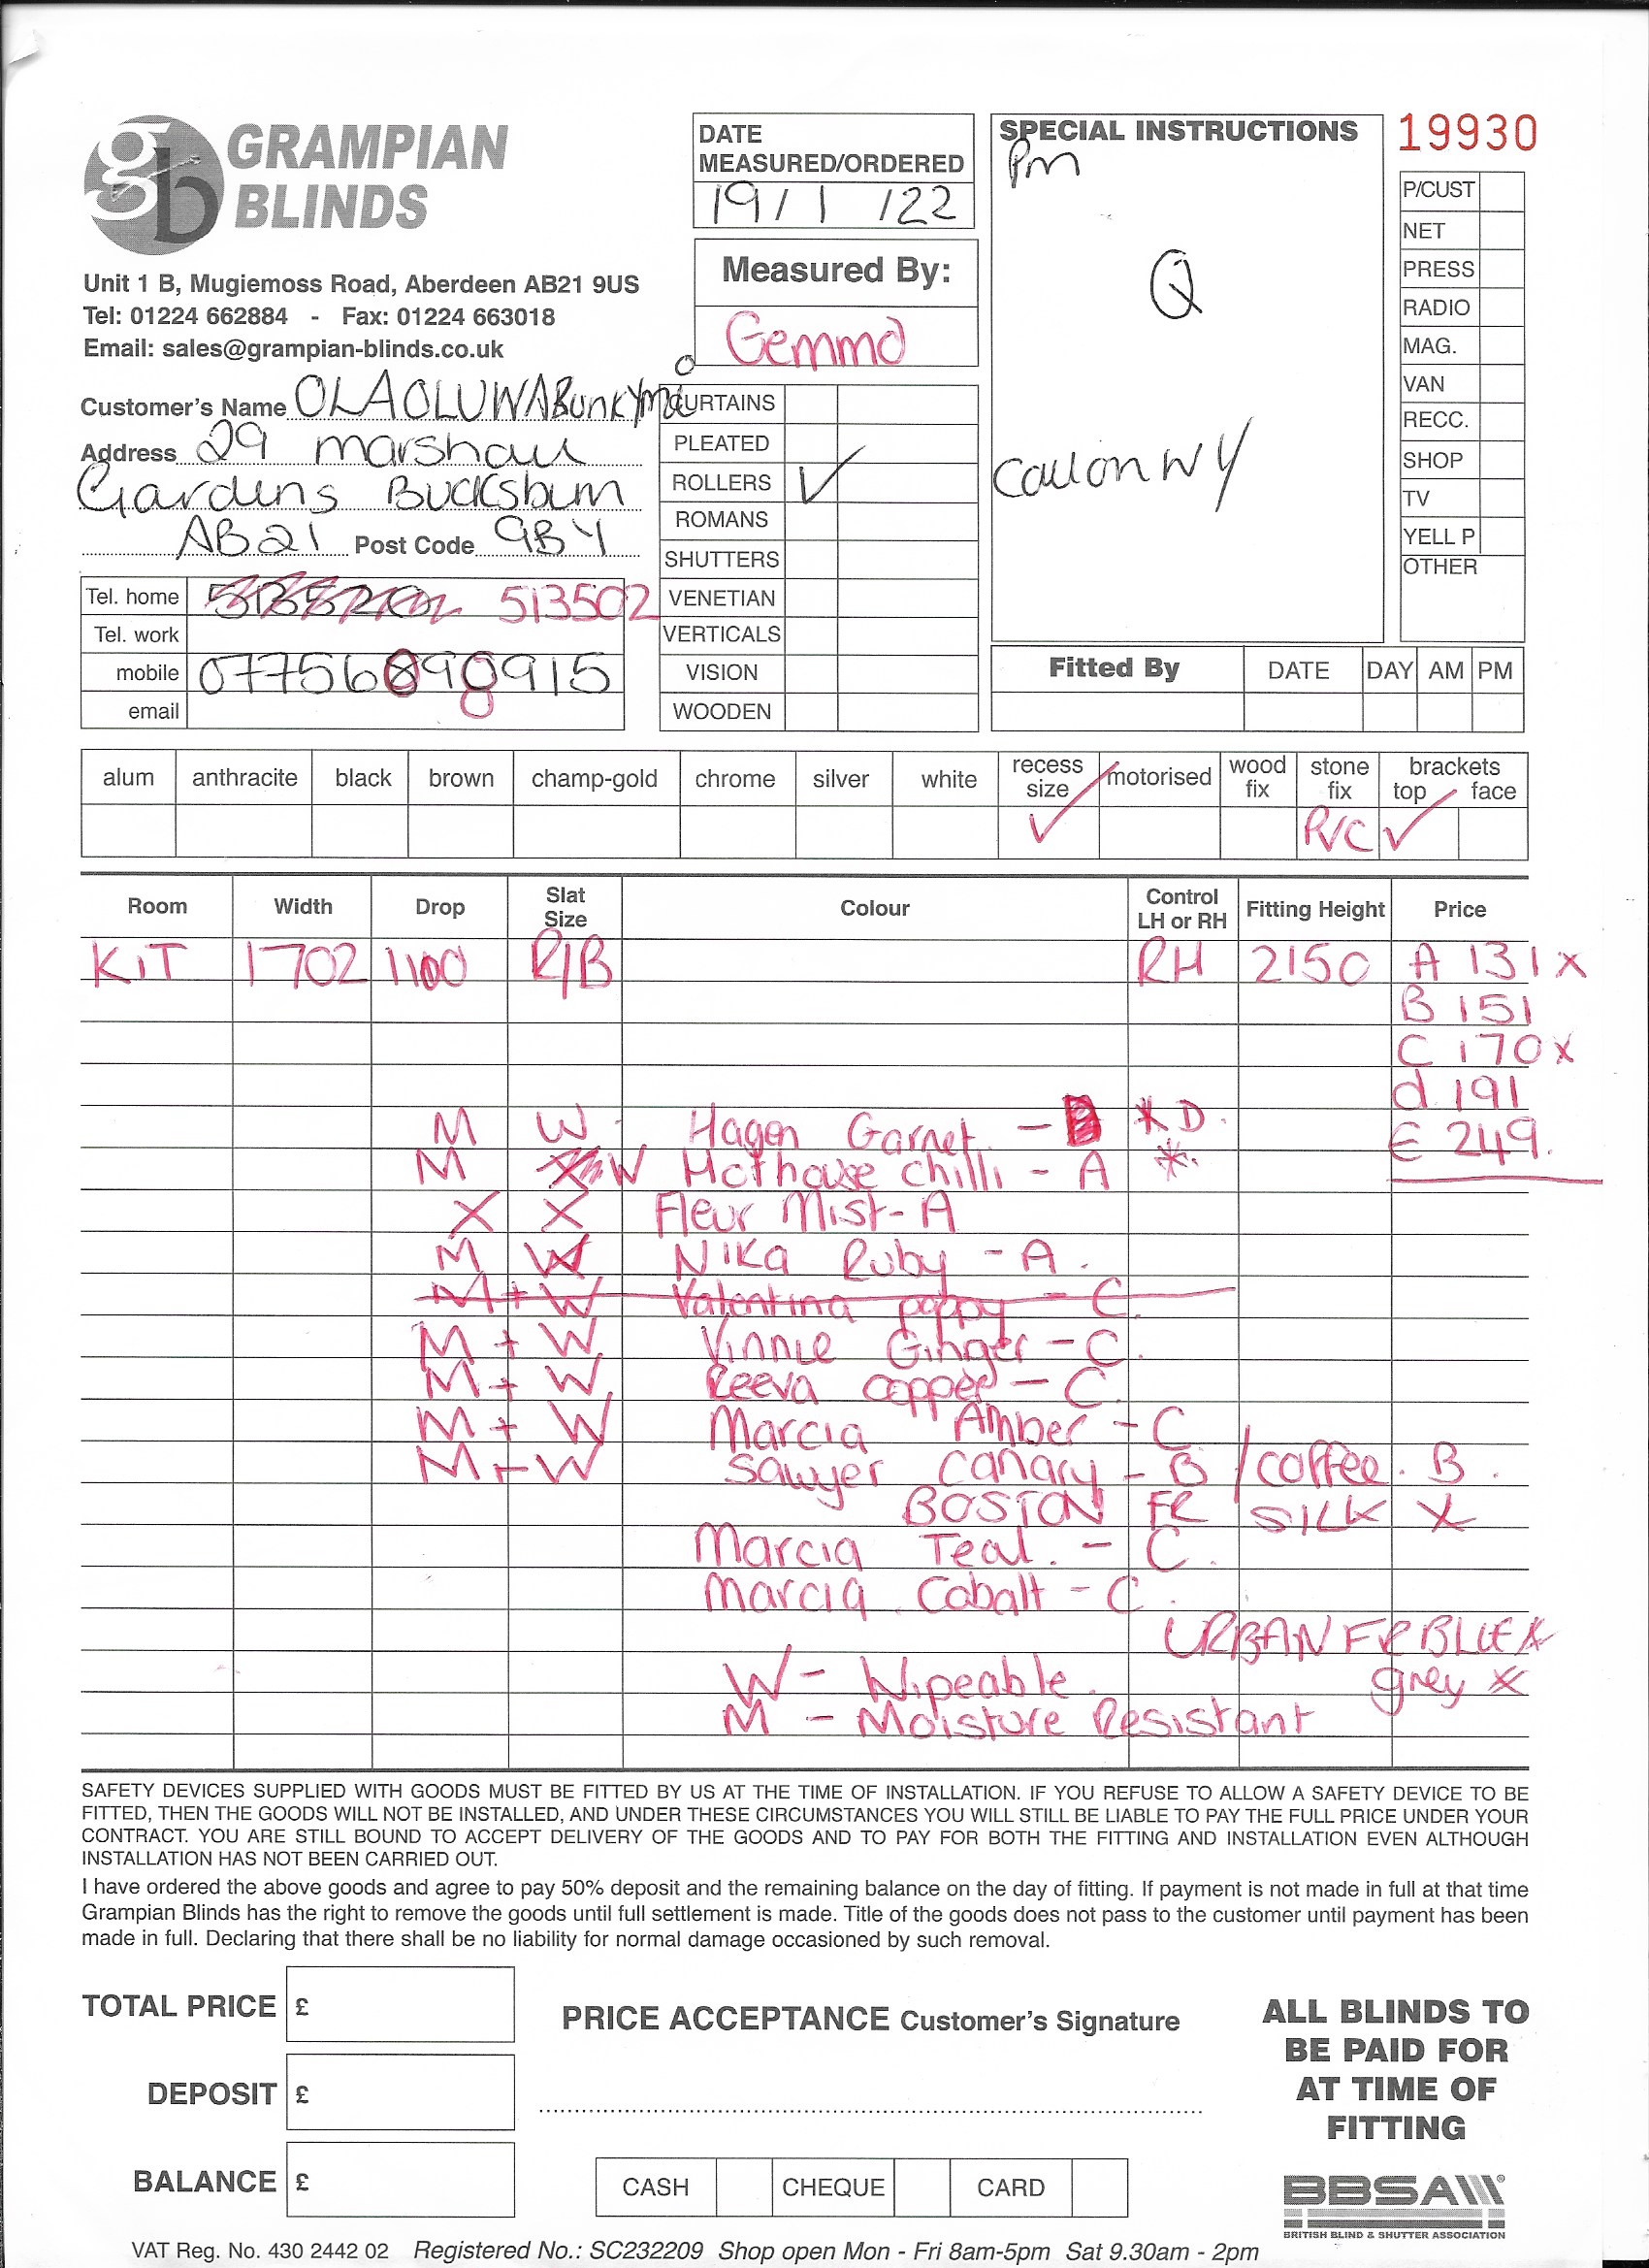 GRAMPIAN
BLINDS
Unit 1 B, Mugiemoss Road, Aberdeen AB21 9US
Tel: 01224 662884 - Fax: 01224 663018
Email: sales@grampian-blinds.co.uk
DATE
MEASURED/ORDERED
19/1/22
Measured By:
Gemma
SPECIAL INSTRUCTIONS
Pm
Q
19930
P/CUST
NET
PRESS
RADIO
MAG.
VAN
RECC.
SHOP
TV
YELL P
OTHER
Customer's Name
Address 29 Marshall
Gardens Bucksburn
AB21 Post Code 9BY
Tel. home 513502
Tel. work
mobile 07756898915
email
CURTAINS
PLEATED
ROLLERS ✓
ROMANS
SHUTTERS
VENETIAN
VERTICALS
VISION
WOODEN
Fitted By DATE DAY AM PM
alum anthracite black brown champ-gold chrome silver white recess size motorised wood fix stone fix brackets top face
✓ R/C ✓
Room Width Drop Slat Size Colour Control LH or RH Fitting Height Price
KIT 1702 1100 R/B RH 2150 A 131 x
B 151
C 170 x
d 191
M W Hagen Garnet - * D.
E 249.
M W Hothouse Chilli - A *
X X Fleur Mist - A
M W Nika Ruby - A.
M + W Valentina poppy - C.
M + W Vinnie Ginger - C.
M + W Reeva copper - C
M + W Marcia Amber - C
M + W Sawyer Canary - B / coffee. B.
BOSTON FR SILK X
Marcia Teal. - C.
Marcia Cobalt - C.
URBAN FR BLUE X
W - Wipeable. grey X
M - Moisture Resistant
SAFETY DEVICES SUPPLIED WITH GOODS MUST BE FITTED BY US AT THE TIME OF INSTALLATION. IF YOU REFUSE TO ALLOW A SAFETY DEVICE TO BE
FITTED, THEN THE GOODS WILL NOT BE INSTALLED, AND UNDER THESE CIRCUMSTANCES YOU WILL STILL BE LIABLE TO PAY THE FULL PRICE UNDER YOUR
CONTRACT. YOU ARE STILL BOUND TO ACCEPT DELIVERY OF THE GOODS AND TO PAY FOR BOTH THE FITTING AND INSTALLATION EVEN ALTHOUGH
INSTALLATION HAS NOT BEEN CARRIED OUT.
I have ordered the above goods and agree to pay 50% deposit and the remaining balance on the day of fitting. If payment is not made in full at that time
Grampian Blinds has the right to remove the goods until full settlement is made. Title of the goods does not pass to the customer until payment has been
made in full. Declaring that there shall be no liability for normal damage occasioned by such removal.
TOTAL PRICE £
DEPOSIT £
BALANCE £
PRICE ACCEPTANCE Customer's Signature
CASH CHEQUE CARD
ALL BLINDS TO
BE PAID FOR
AT TIME OF
FITTING
BBSA
BRITISH BLIND & SHUTTER ASSOCIATION
VAT Reg. No. 430 2442 02 Registered No.: SC232209 Shop open Mon - Fri 8am-5pm Sat 9.30am - 2pm